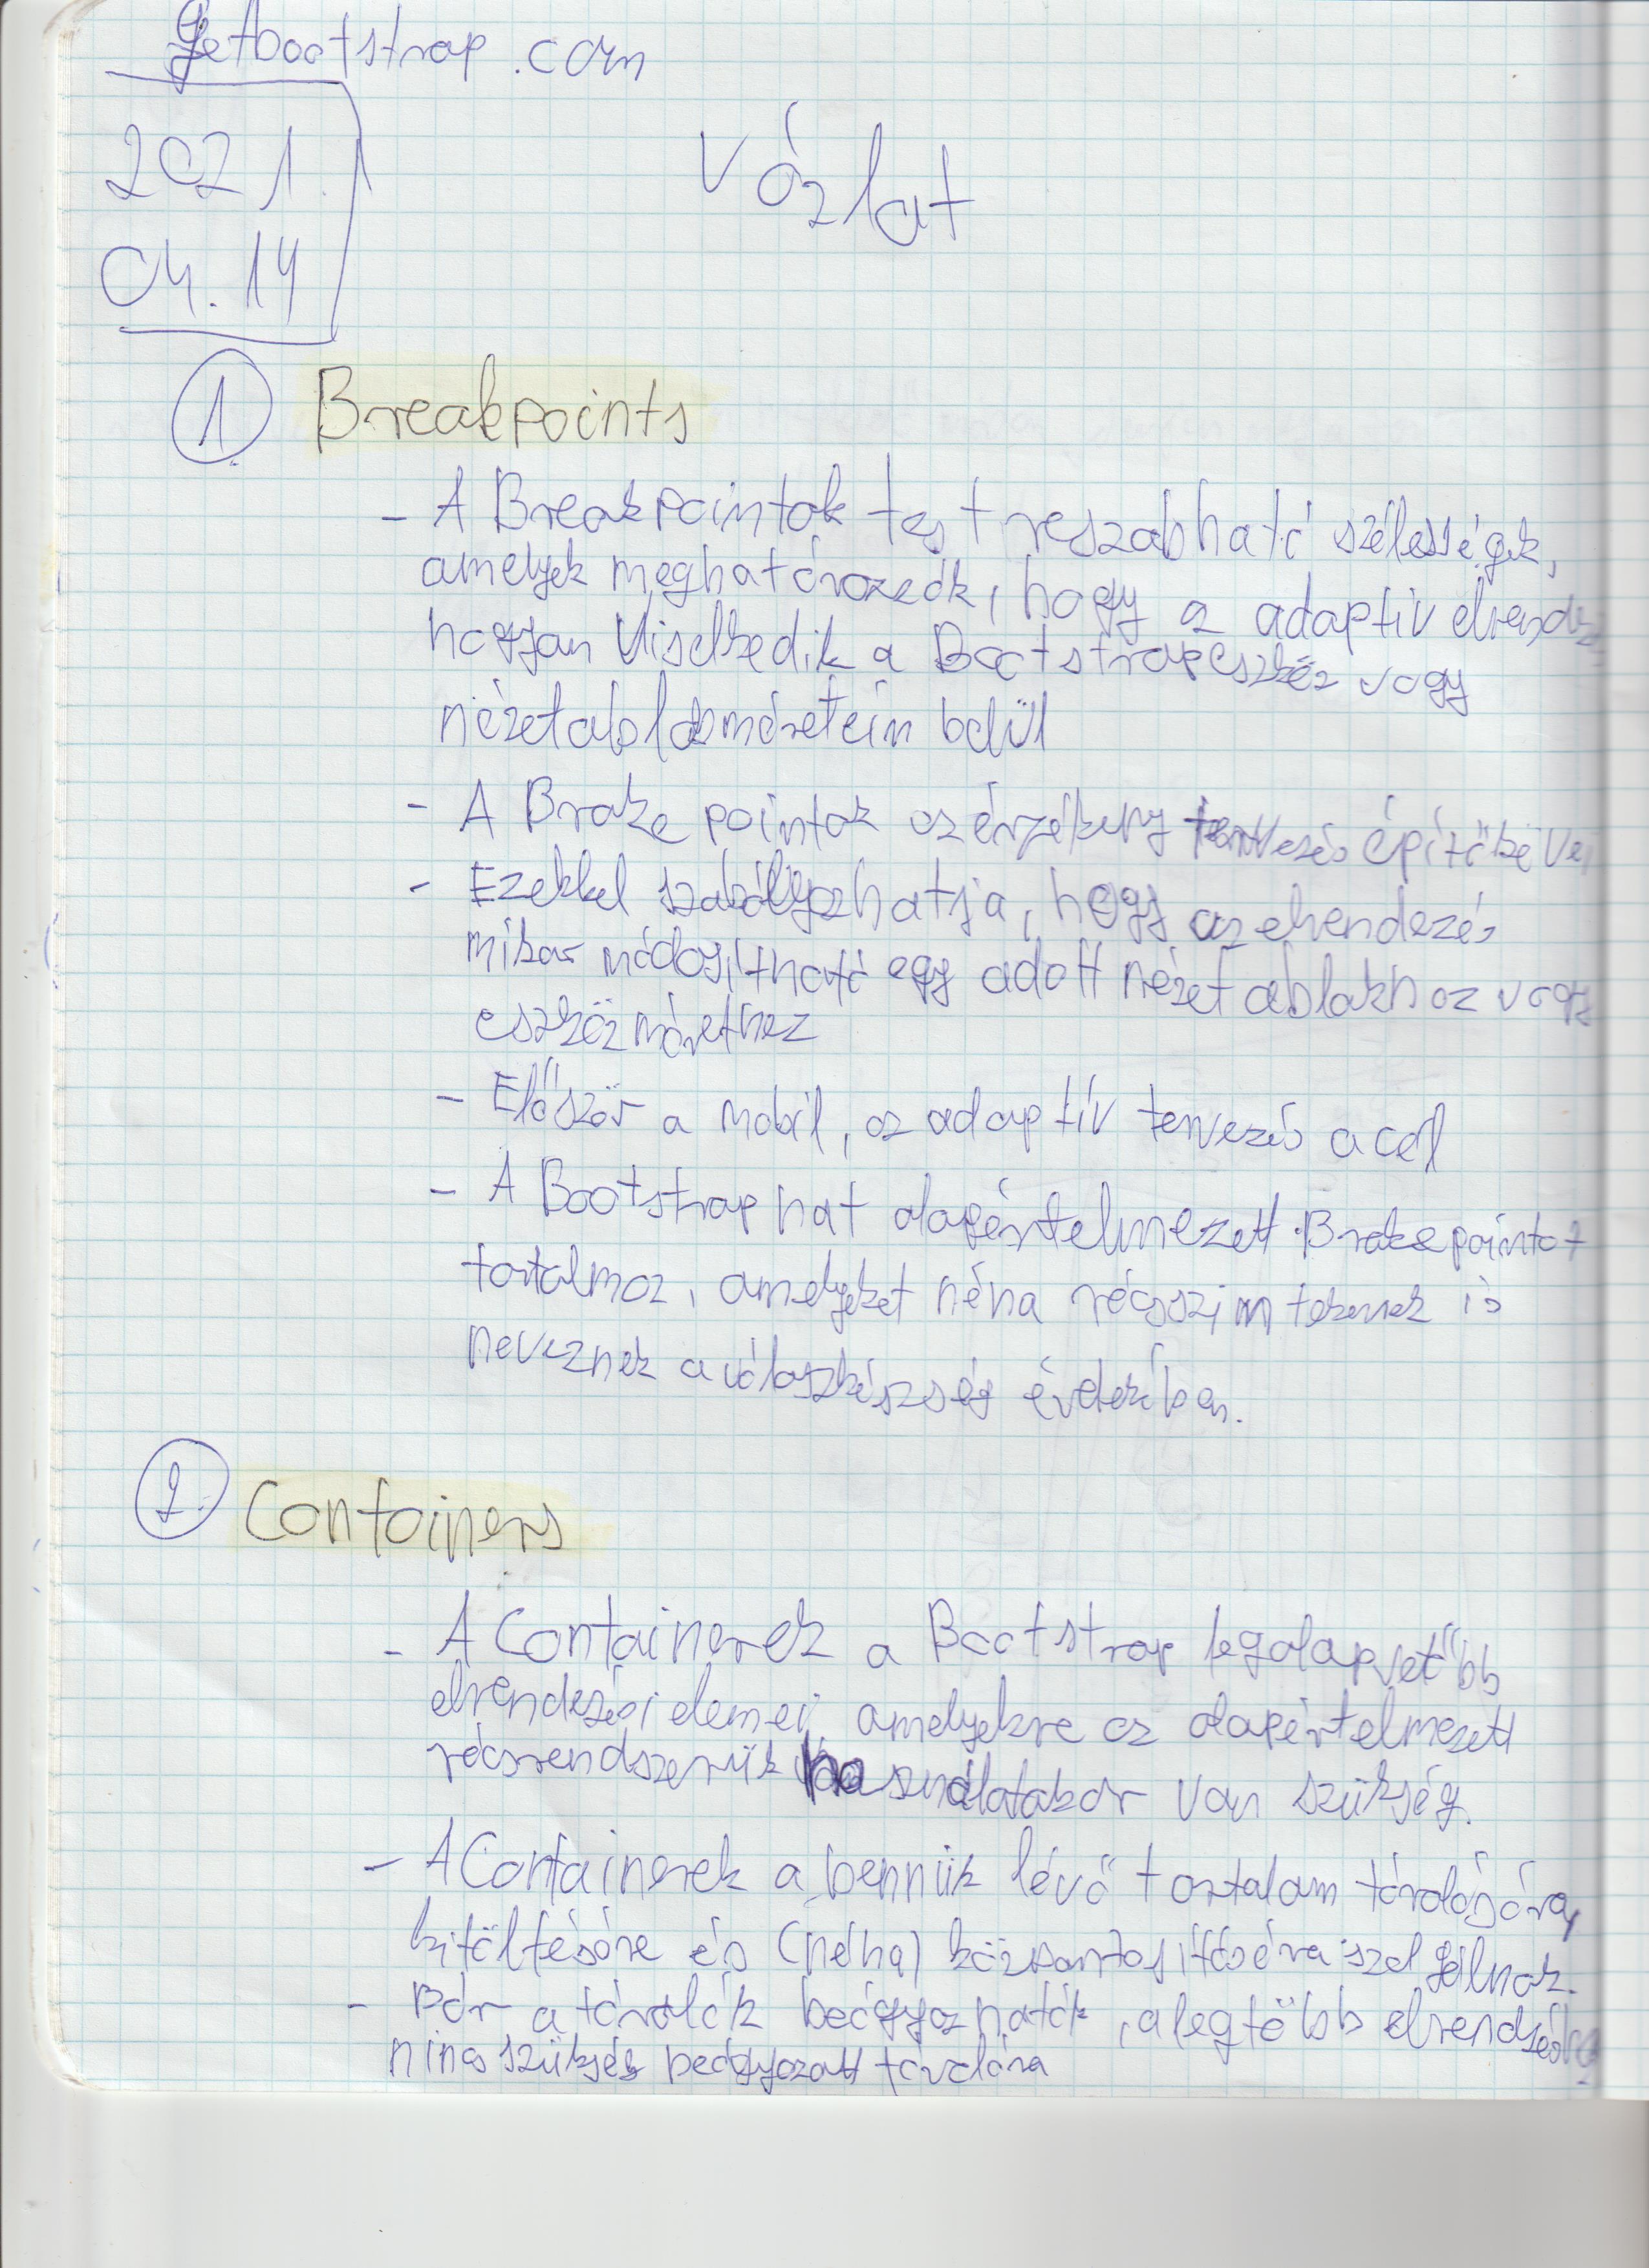 getbootstrap.com
2021.
04.14
Vázlat
1. Breakpoints
- A Breakpointok testreszabható szélességek,
amelyek meghatározzák, hogy az adaptív elrendez
hogyan viselkedik a Bootstrap eszköz vagy
nézetablak méretein belül
- A Brake pointok az érzékeny tervezés építőkövei
- Ezekkel szabályozhatja, hogy az elrendezés
mikor módosítható egy adott nézetablakhoz vagy
eszközmérethez
- Először a mobil, az adaptív tervezés a cél
- A Bootstrap hat alapértelmezett Brakepointot
tartalmaz, amelyeket néha rácsszinteknek is
neveznek a válaszkészség érdekében.
2. Containers
- A Containerek a Bootstrap legalapvetőbb
elrendezési elemei, amelyekre az alapértelmezett
rácsrendszerük használatakor van szükség.
- A Containerek a bennük lévő tartalom tárolására,
kitöltésére és (néha) központosítására szolgálnak.
- Bár a tárolók beágyazhatók, a legtöbb elrendezéshez
nincs szükség beágyazott tárolóra